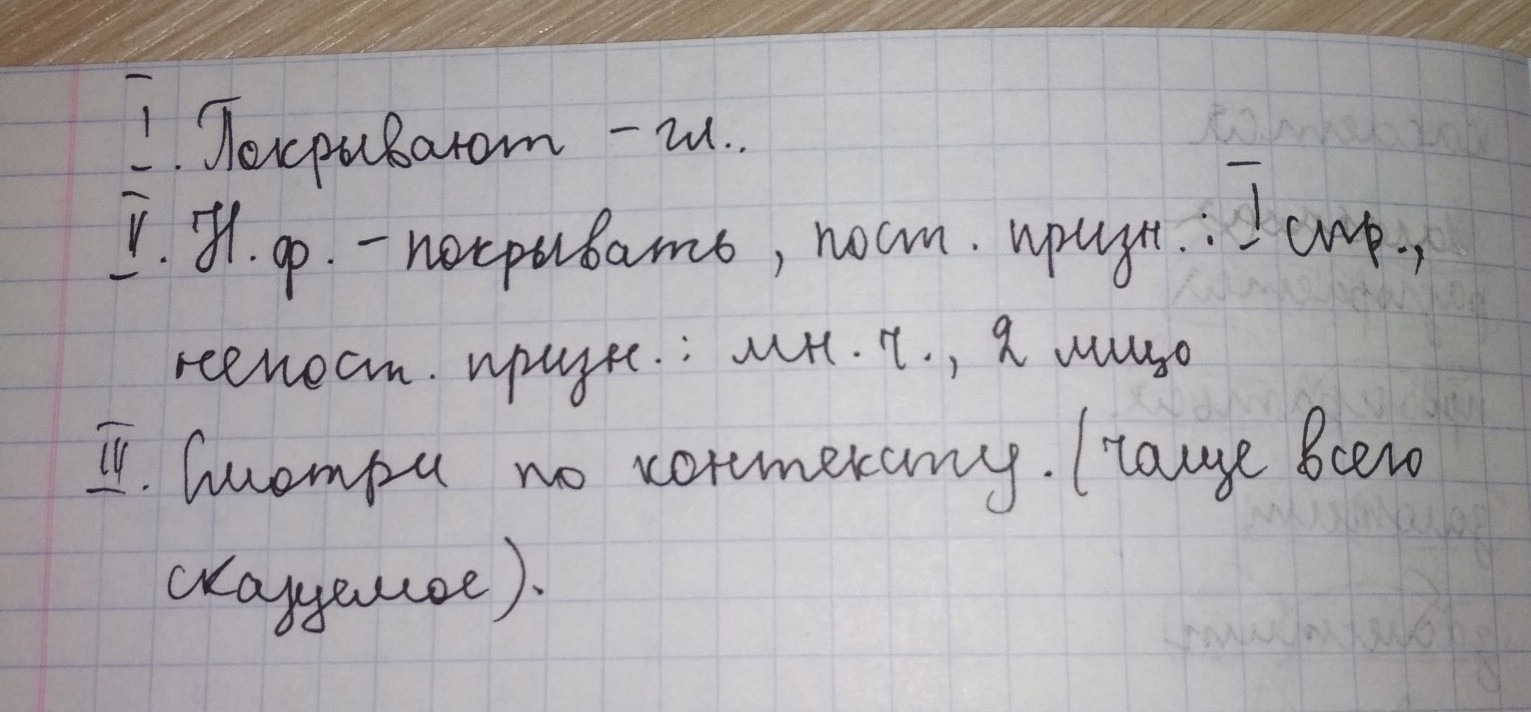 I. Покрывают – гл..
II. Н.ф. – покрывать, пост. призн.: I спр.,
непост. призн.: мн.ч., 2 лицо
III. Смотри по контексту. (чаще всего
сказуемое).